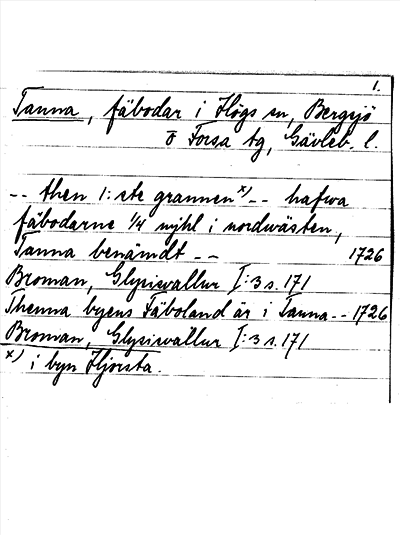 1.
Tanna, fäbodar i Högs sn, Bergsjö
o Forsa tg, Gävleb. l.
-- then 1:ste grannen x) -- hafwa
fäbodarne 1/4 mjhl i nordwästen,
Tanna benämdt -- 1726
Broman, Glysisvallur I:3 s. 171
Thenna byens Fäboland är i Tanna -- 1726
Broman, Glysisvallur I:3 s. 171
x) i byn Hjorsta.